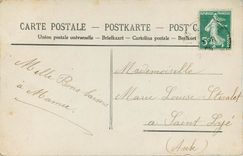 CARTE POSTALE - POSTKARTE - POST C
Union postale universelle - Briefkaart - Cartolina postale - 
5
Mille Bons baisers
à Mamie
Mademoiselle
Marie Louise
à Saint Lyé
(Aube)